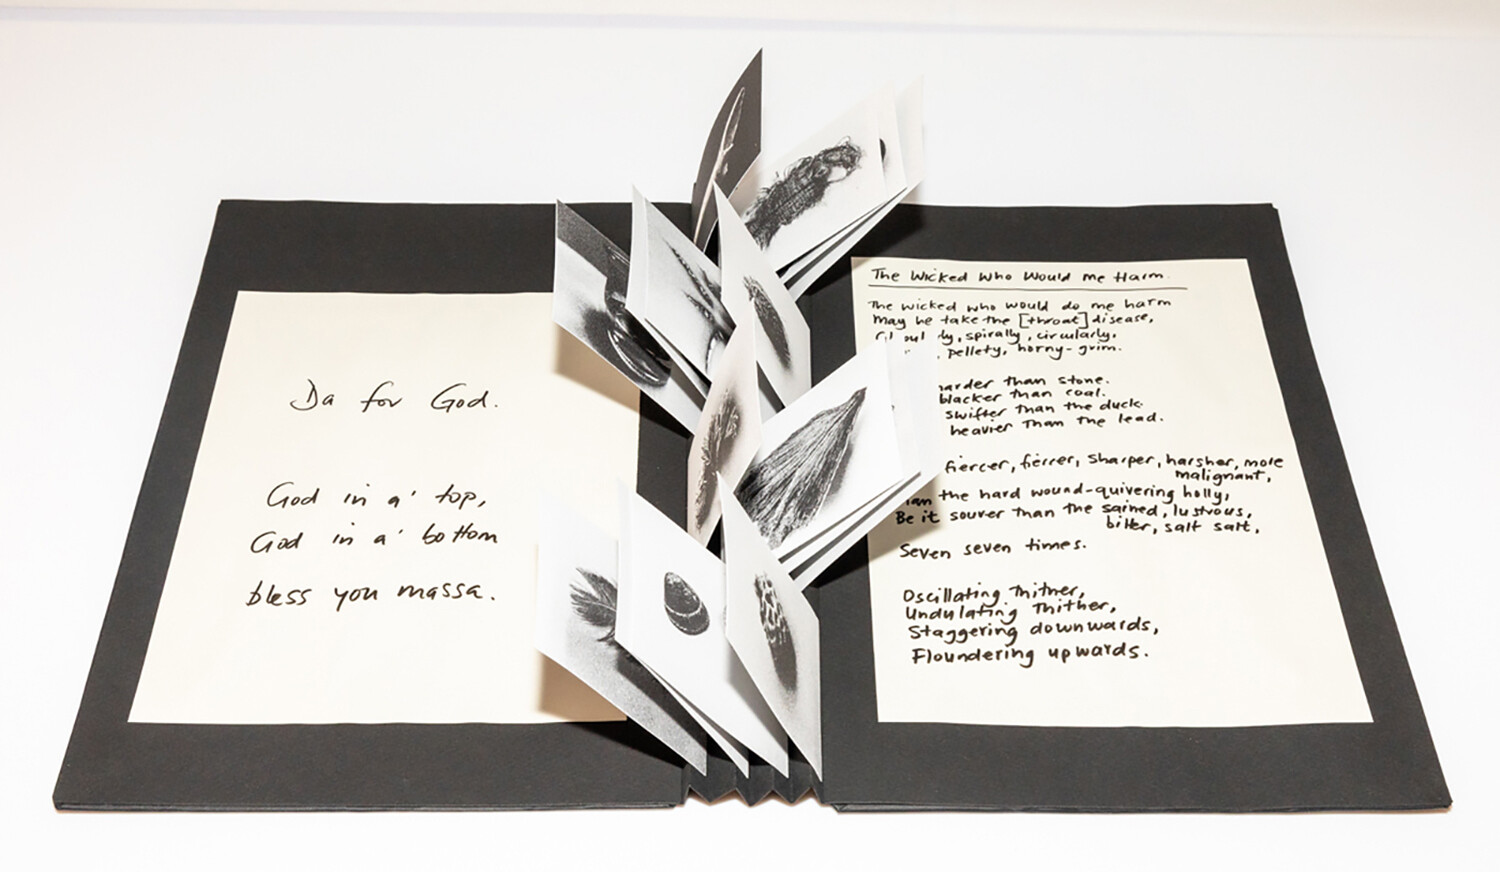 Da for God.
God in a' top,
God in a' bottom
bless you massa.
The Wicked Who Would me Harm.
The wicked who would do me harm
May he take the [throat] disease,
spirally, circularly,
pellety, horny-grim.
harder than stone.
blacker than coal.
swifter than the duck.
heavier than the lead.
fiercer, fiercer, sharper, harsher, more
malignant,
the hard wound-quivering holly,
Be it sourer than the sained, lustrous,
bitter, salt salt,
Seven seven times.
Oscillating thither,
Undulating thither,
Staggering downwards,
Floundering upwards.